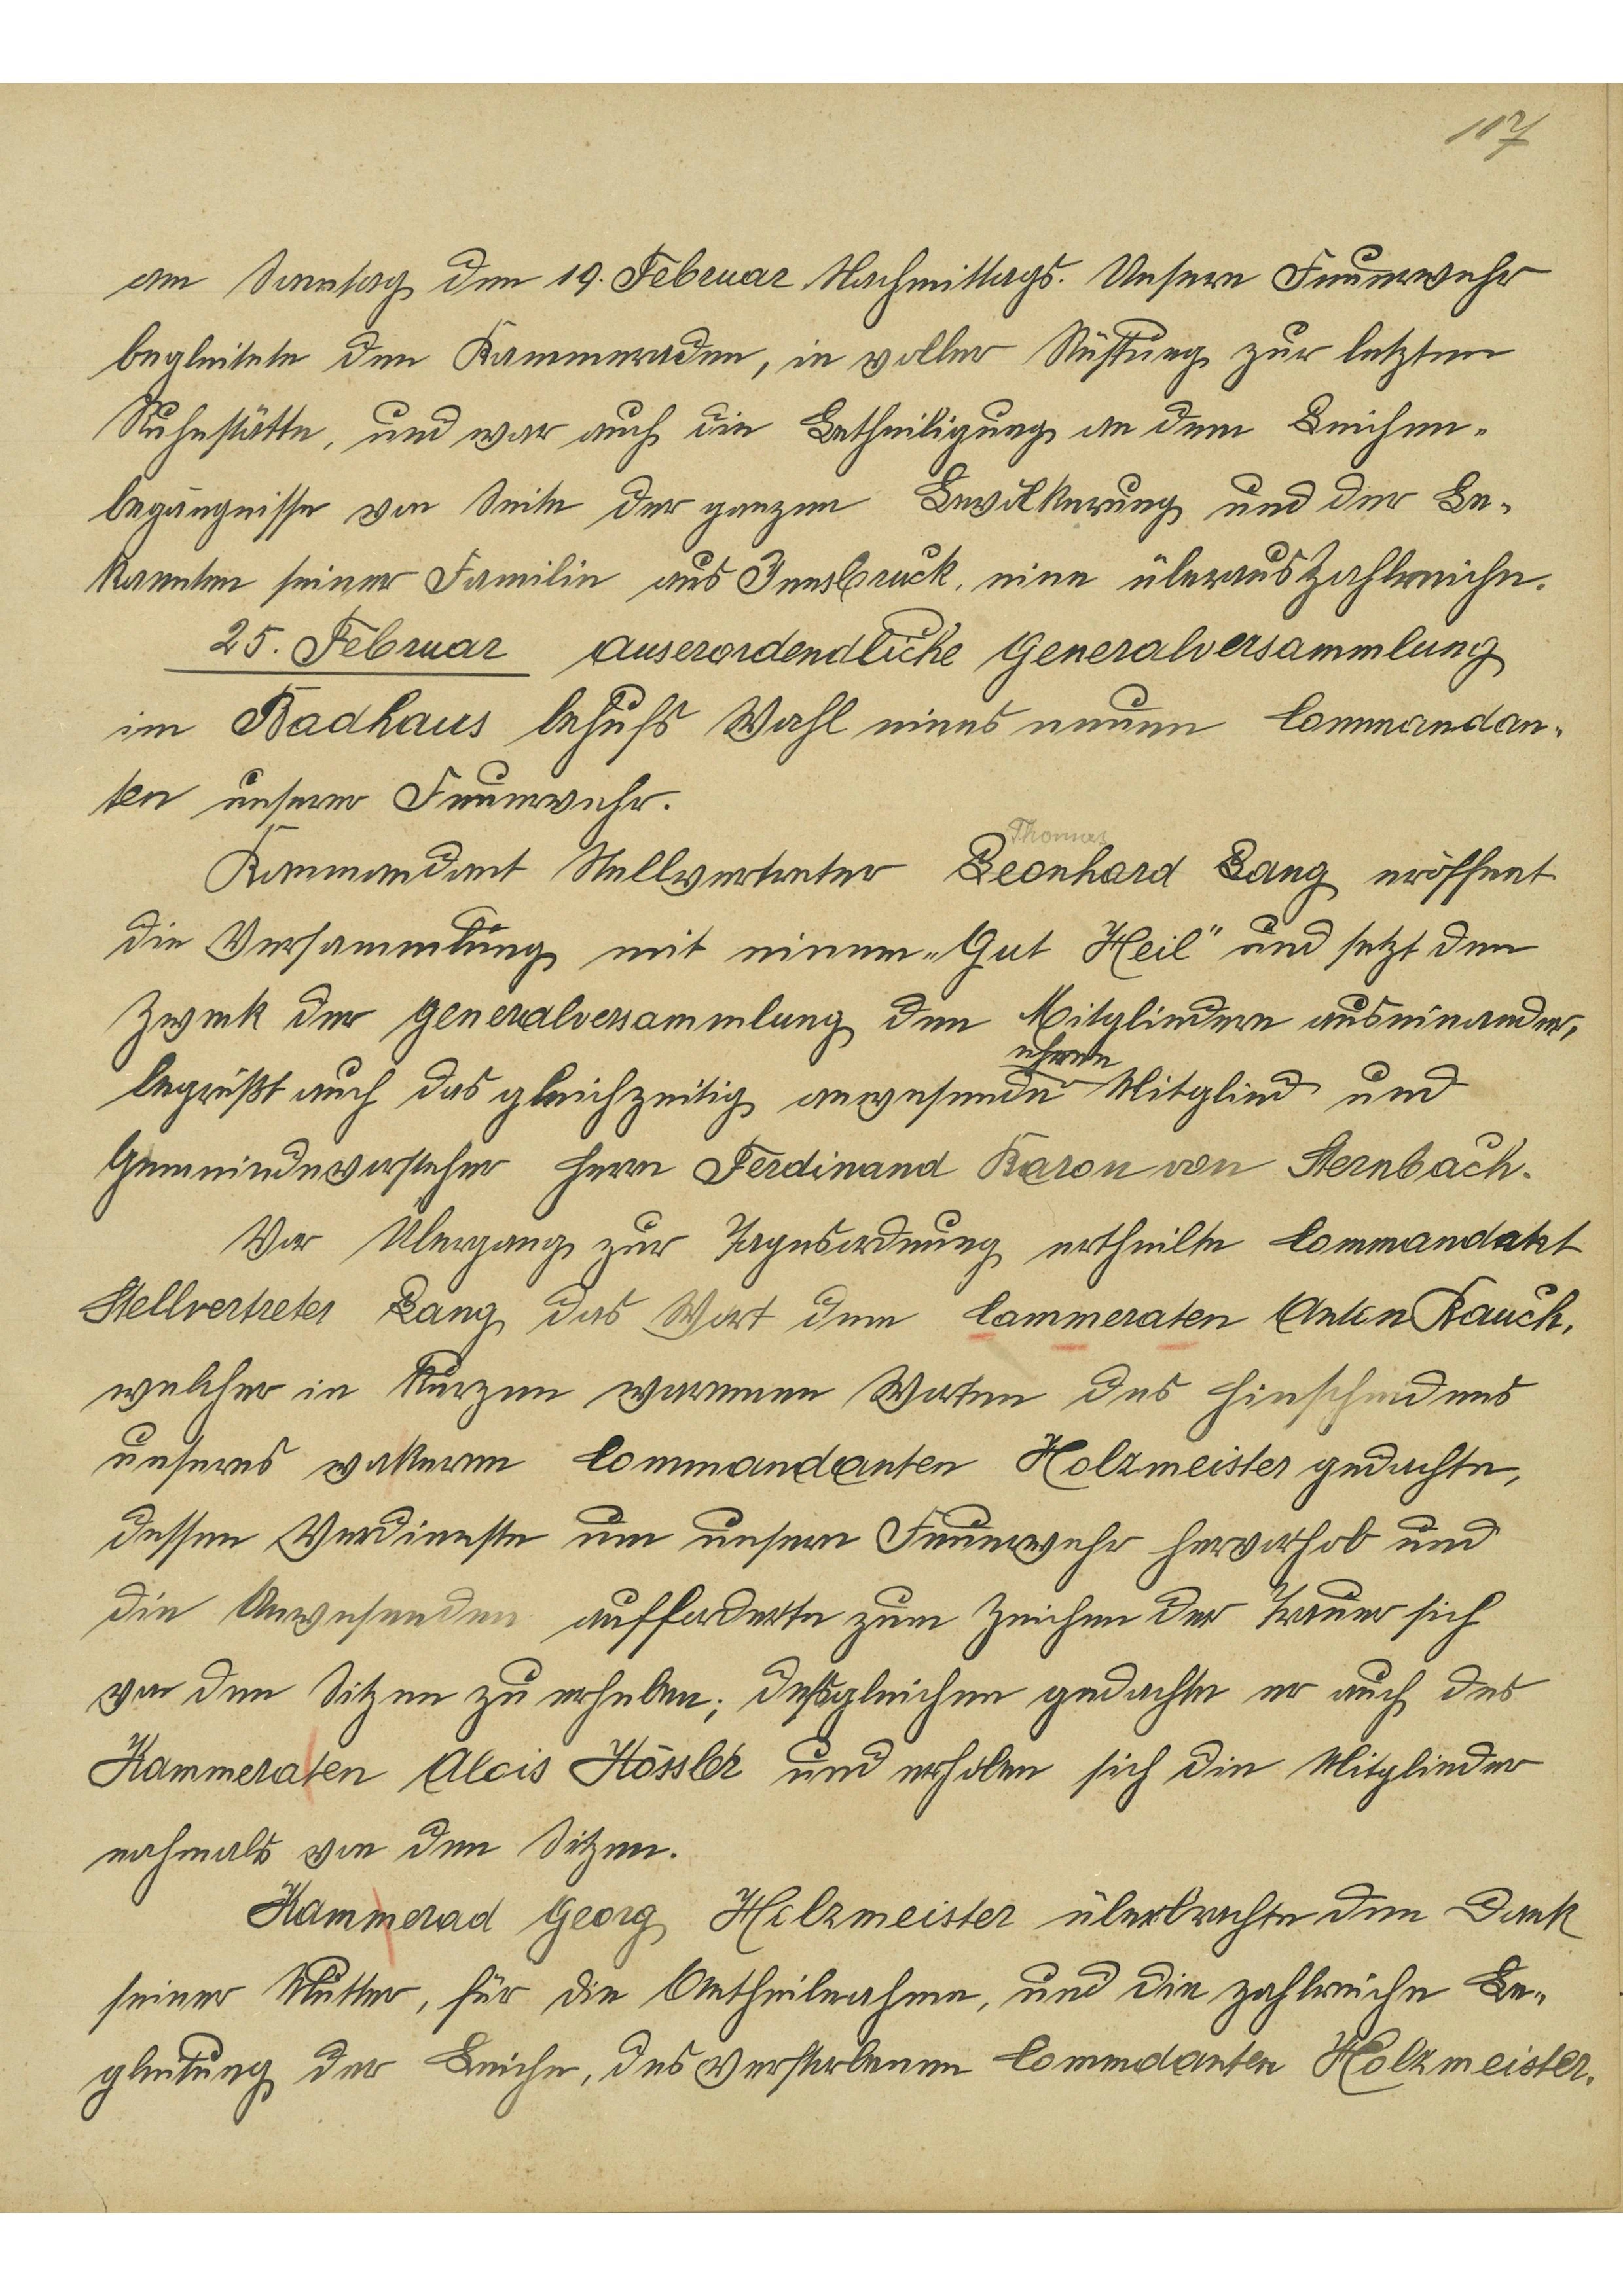 107
am Sonntag den 19. Februar Nachmittags. Unsere Feuerwehr
begleitete den Kammeraden, in voller Rüstung zur letzten
Ruhestätte, und war auch die Betheiligung an dem Leichen-
begängnisse von Seite der ganzen Bevölkerung und der Be-
kannten seiner Familie aus Innsbruck, eine überaus Zahlreiche.
25. Februar auserordendliche Generalversammlung
im Badhaus behufs Wahl eines neuen Commandan-
ten unserer Feuerwehr.
Thomas
Kommandant Stellvertreter Leonhard Lang eröffent
die Versammlung mit einem „Gut Heil" und setzt den
Zwek der Generalversammlung den Mitgliedern auseinander,
ehren
begrüßt auch das gleichzeitig anwesende Mitglied und
Gemeindevorsteher Herrn Ferdinand Baron von Sternbach.
Vor Übergang zur Tagesordnung ertheilte Commandant
Stellvertreter Lang das Wort dem Cammeraten Anton Rauch,
welcher in Kurzen warmen Worten des Hinscheidens
unseres wakeren Commandanten Holzmeister gedachte,
dessen Verdienste um unsere Feuerwehr hervorhob und
die Anwesenden aufforderte zum Zeichen der Trauer sich
von den Sitzen zu erheben; deßgleichen gedachte er auch des
Kammeraten Alois Hössler und erhoben sich die Mitglieder
nochmals von den Sitzen.
Kammerad Georg Holzmeister überbrachte den Dank
seiner Mutter, für die Antheilnahme, und die zahlreiche Be-
gleitung der Leiche, des verstorbenen Commdanten Holzmeister.